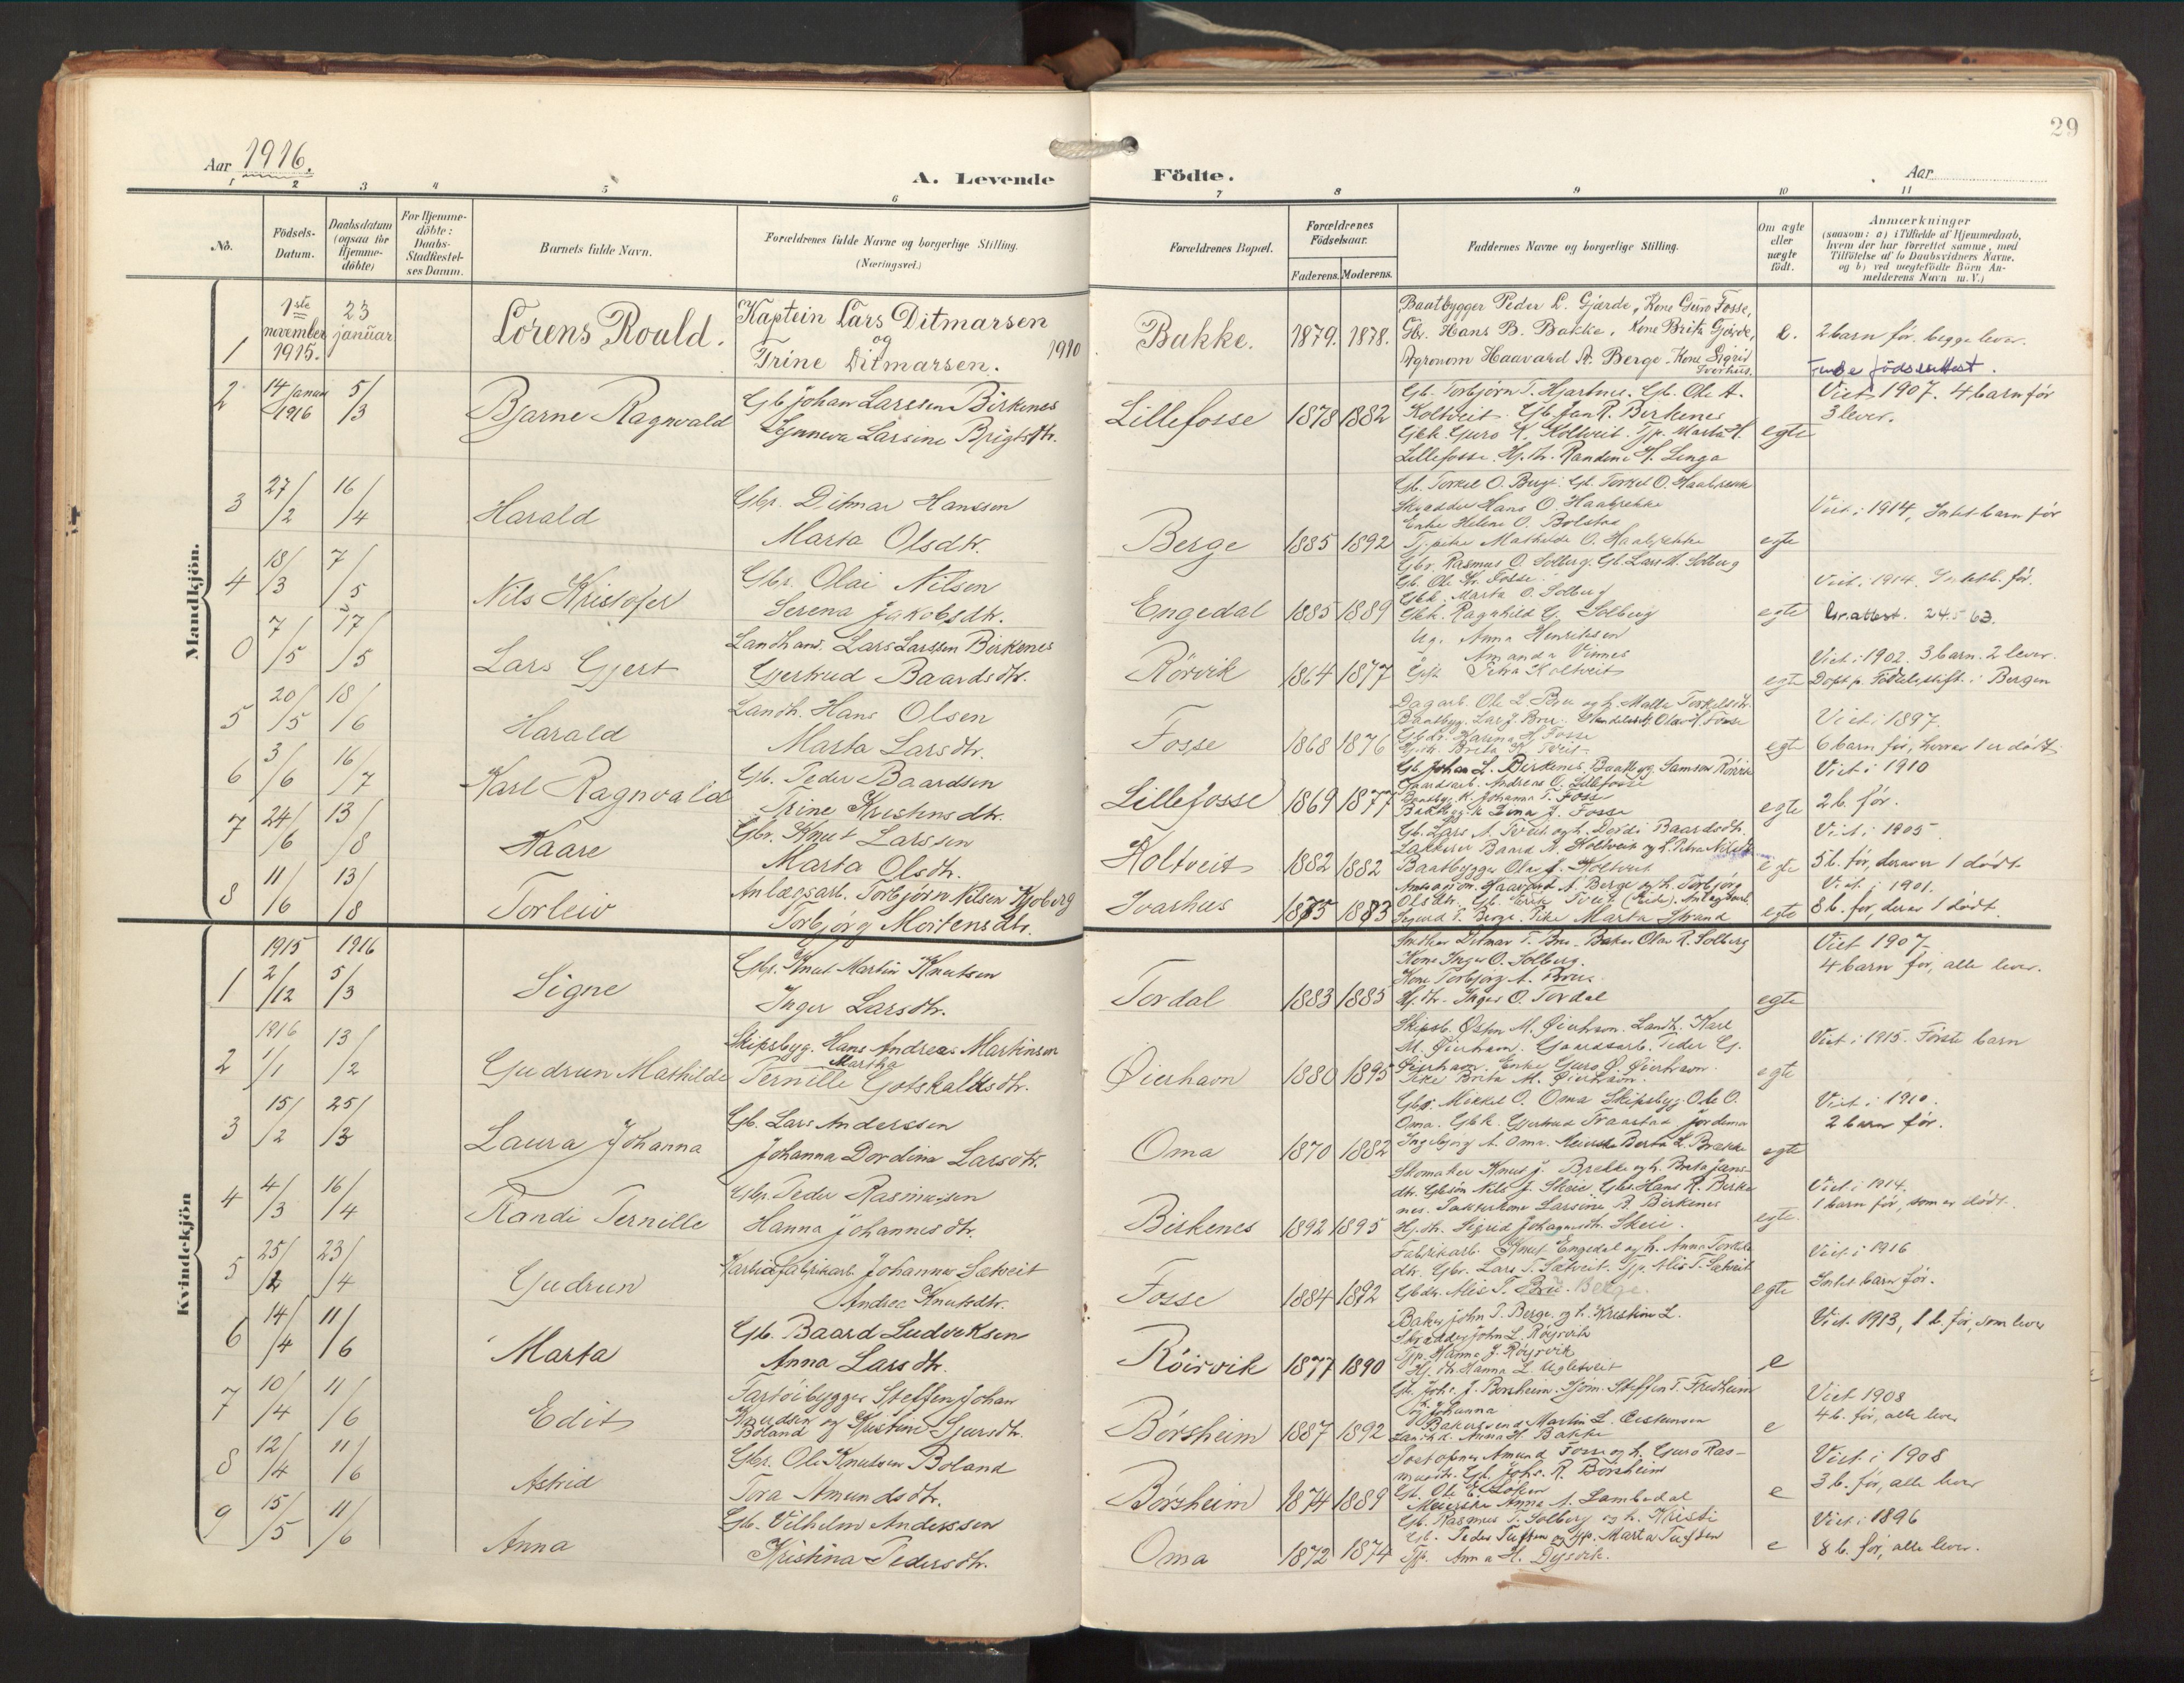 29
Aar 1916.
A. Levende Födte.
Aar
1 2 3 4 5 6 7 8 9 10 11
No.
Födsels-Datum.
Daabsdatum (ogsaa for Hjemme-döbte)
For Hjemme-döbte: Daabs-Stadfæstel-ses Datum.
Barnets fulde Navn.
Forældrenes fulde Navne og borgerlige Stilling. (Næringsvei.)
Forældrenes Bopæl.
Forældrenes Födselsaar.
Faderens. Moderens.
Faddernes Navne og borgerlige Stilling.
Om ægte eller uægte födt.
Anmærkninger
(saasom: a) i Tilfælde af Hjemmedaab, hvem der har forrettet samme, med Tilföielse af to Daabsvidners Navne, og b) ved uægtefödte Börn An-melderens Navn m.V.)
Mandkjön.
1 1ste november 1915. 23 januar Lorens Roald. Kaptein Lars Ditmarsen og Trine Ditmarsen. 1910 Bakke. 1879. 1878.
Baatbygger Peder L. Gjærde, Kone Guro Fosse,
Gbr. Hans B. Bakke, Kone Brita Gjerde,
Agronom Haavard A. Berge. Kone Sigrid Tverhus.
e. 2 barn för. begge lever.
födselsattest.
2 14 januar 1916 5/3 Bjarne Ragnvald Gb. Johan Larssen Birkenes
Gunneva Larsine Brigtsdtr. Lillefosse 1878 1882
Gb. Torbjörn T. Hjartnes. Gb. Ole A.
Koltveit. Gb. Jan R. Berkenes
Gbk. Guro K. Koltveit. Tjp. Marta H.
Lillefosse. Hj. dtr. Randine H. Linga
egte Viet 1907. 4 barn för
3 lever.
3 27/2 16/4 Harald Gbr. Ditmar Hanssen
Marta Olsdtr. Berge 1885 1892
Gb. Torkel O. Berge. Gb. Torkel O. Haabrekke
Skradder Hans O. Haabrekke
Enke Helene O. Bolstad
Tj.pike Mathilde O. Haabrekke
egte Viet i 1914, Intet barn för
4 18/3 7/5 Nils Kristofer Gbr. Olai Nilsen
Serena Jakobsdtr. Engedal 1885 1889
Gbr. Rasmus O. Solberg. Gb. Lars M. Solberg
Gb. Ole Kr. Fosse.
Gbk. Marta O. Solberg
Gbk. Ragnhild G. Solberg
egte Viet i 1914. Intet b. för.
attest. 24.5 63.
0 7/5 17/5 Lars Gjert Landhand. Lars Larssen Birkenes
Gjertrud Baardsdtr. Rörvik 1864 1877
Ug. Anna Henriksen
Amanda Vinnes
Petra Koltveit
egte Viet i 1902. 3 barn. 2 lever.
Döpt p. Födselsstift. i Bergen
5 20/5 18/6 Harald Landh. Hans Olsen
Marta Larsdtr. Fosse 1868 1876
Dagarb. Ole L. Bru og h. Malla Torkelsdtr.
Baatbyg. Lars J. Bru. Olav H. Fosse
Gbdr. Karina H. Fosse
Hj.dtr. Brita K. Tveit
egte Viet i 1897.
6 barn för, hvorav 1 er dödt.
6 3/6 16/7 Karl Ragnvald Gb. Peder Baardsen
Trine Kristensdtr. Lillefosse 1869 1877
Gb. Johan L. Birkenes. Baatbyg. Samson Rörvik
Gaardsarb. Andreas O. Lillefosse
Baatbyg. k. Johanna T. Fosse
Lina J. Fosse
egte Viet i 1910
2 b. för.
7 24/6 13/8 Kaare Gbr. Knut Larssen
Marta Olsdtr. Koltveit 1882 1882
Gb. Lars A. Tveit og h. Dordi Baardsdtr.
Lakkerer Baard A. Koltveit og h. Petra Nilsdtr.
Baatbygger Ola J. Koltveit
egte Viet i 1905
5 b. för, derav er 1 dödt
8 11/6 13/8 Torleiv Anlægsarb. Torbjörn Nilsen Kjoberg
Torbjörg Mortensdtr. Ivarhus 1875 1883
Haavard A. Berge og h. Torbjörg
Olsdtr. Gb. Erik Tveit
Sigurd T. Berge. Pike Marta Strand
egte Viet i 1901.
8 b. för, derav 1 dödt.
Kvindekjön
1 1915 2/12 1916 5/3 Signe Gbr. Knut Martin Knutsen
Inger Larsdtr. Tordal 1883 1885
Smedker Ditmar T. Bru. Baker Olav R. Solberg
Kone Inger O. Solberg.
Kone Torbjörg A. Bru.
Hj.dtr. Inger O. Tordal
egte Viet 1907
4 barn för, alle lever.
2 1916 1/1 13/2 Gudrun Mathilde Skipsbyg. Hans Andreas Martinsen
Martha
Pernille Gotskalksdtr. Øierhavn 1880 1895
Skipsb. Ospen M. Øierhavn. Landh. Karl
M. Øierhavn. Gaardsarb. Peder G.
Øierhavn. Enke Guro O. Øierhavn.
Pike Brita M. Øierhavn.
egte Viet i 1915. Förste barn
3 15/2 25/3 Laura Johanna Gb. Lars Anderssen
Johanna Dordina Larsdtr. Oma 1870 1882
Gbr. Mikkel O. Oma Skipsbyg. Ole O.
Oma. Gbk. Gjertrud Traastad Jordemor
Ingebjörg A. Oma. Meierske Berta L. Brekke
egte Viet i 1910.
2 barn för.
4 4/3 16/4 Randi Pernille Gbr. Peder Rasmussen
Hanna Johannesdtr. Birkenes 1892 1895
Skomaker Knut J. Brekke og h. Brita Jans-
dtr. Gbsön Nils J. Skeie Gbr. Hans R. Birke
nes. Larsine R. Birkenes
Hj.dtr. Sigrid Johannesdtr. Skeie.
egte. Viet i 1914.
1 barn för, som er dödt.
5 25/2 23/4 Gudrun Karbidfabrikarb. Johannes Sætveit
Andrea Knutsdtr. Fosse 1884 1892
Fabrikarb. Knut Engedal og h. Anna Torkels
dtr. Gbr. Lars T. Sætveit. Tjp. Alis T. Sætveit
Gbdtr. Alis T. Bru. Berge.
egte Viet i 1916
Intet barn för.
6 14/4 11/6 Marta Gb. Baard Ludveksen
Anna Larsdtr. Röirvik 1877 1890
Baker John T. Berge, og h. Kristine L.
Skradder John L. Röyrvik
Tjp. Hanna J. Röyrvik
Hj. dtr. Hanna L. Ugletveit
e Viet 1913, 1 b. för, som lever
7 10/4 11/6 Edit Fartöibygger Steffen Johan
Knudsen og Kristine Sjursdtr.
Boland Börsheim 1887 1892
Gb. Johs. J. Borsheim. Steffen T. Fredheim
og Johanna
Bakersvend Martin L. Oestensen
Anna H. Bakke
e Viet 1908
4 b. för, alle lever
8 12/4 11/6 Astrid Gbr. Ole Knutsen Boland
Tora Amundsdtr. Börsheim 1874 1889
Postopner Amund Fosse og h. Guro Ras-
musdtr. Gb. Johs. R. Börsheim
Gb. Ole E. Lofsen
Meierske Anna A. Lambedal
e Viet i 1908
3 b. för, alle lever
9 15/5 11/6 Anna Gb. Vilhelm Anderssen
Kristina Pedersdtr. Oma 1872 1874
Gb. Rasmus T. Solberg og h. Kristi
Gb. Peder Tuften og Tjp. Marta Tuften
Tjp. Anna H. Dysvik.
e Viet i 1896
8 b. för, alle lever.